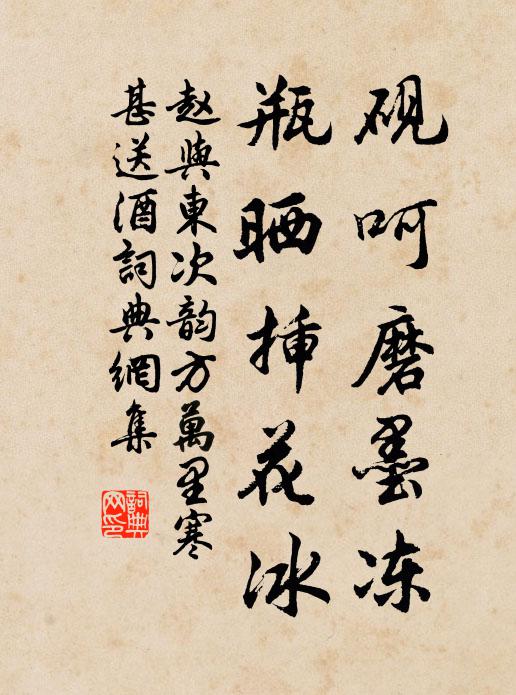 砚呵磨墨冻
瓶晒插花冰
赵与东次韵方万里寒
甚送酒词典网集
词典网印